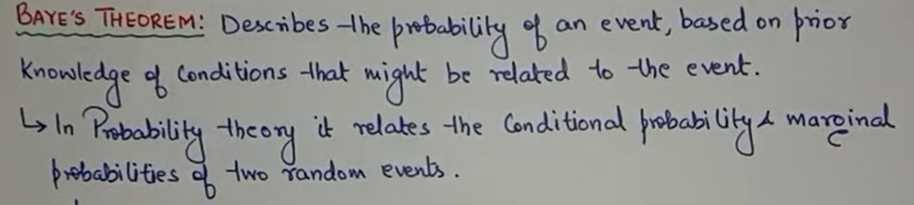 BAYE'S THEOREM: Describes the probability of an event, based on prior
Knowledge of Conditions that might be related to the event.
↳ In Probability theory it relates the Conditional probability & marginal
probabilities of two random events.